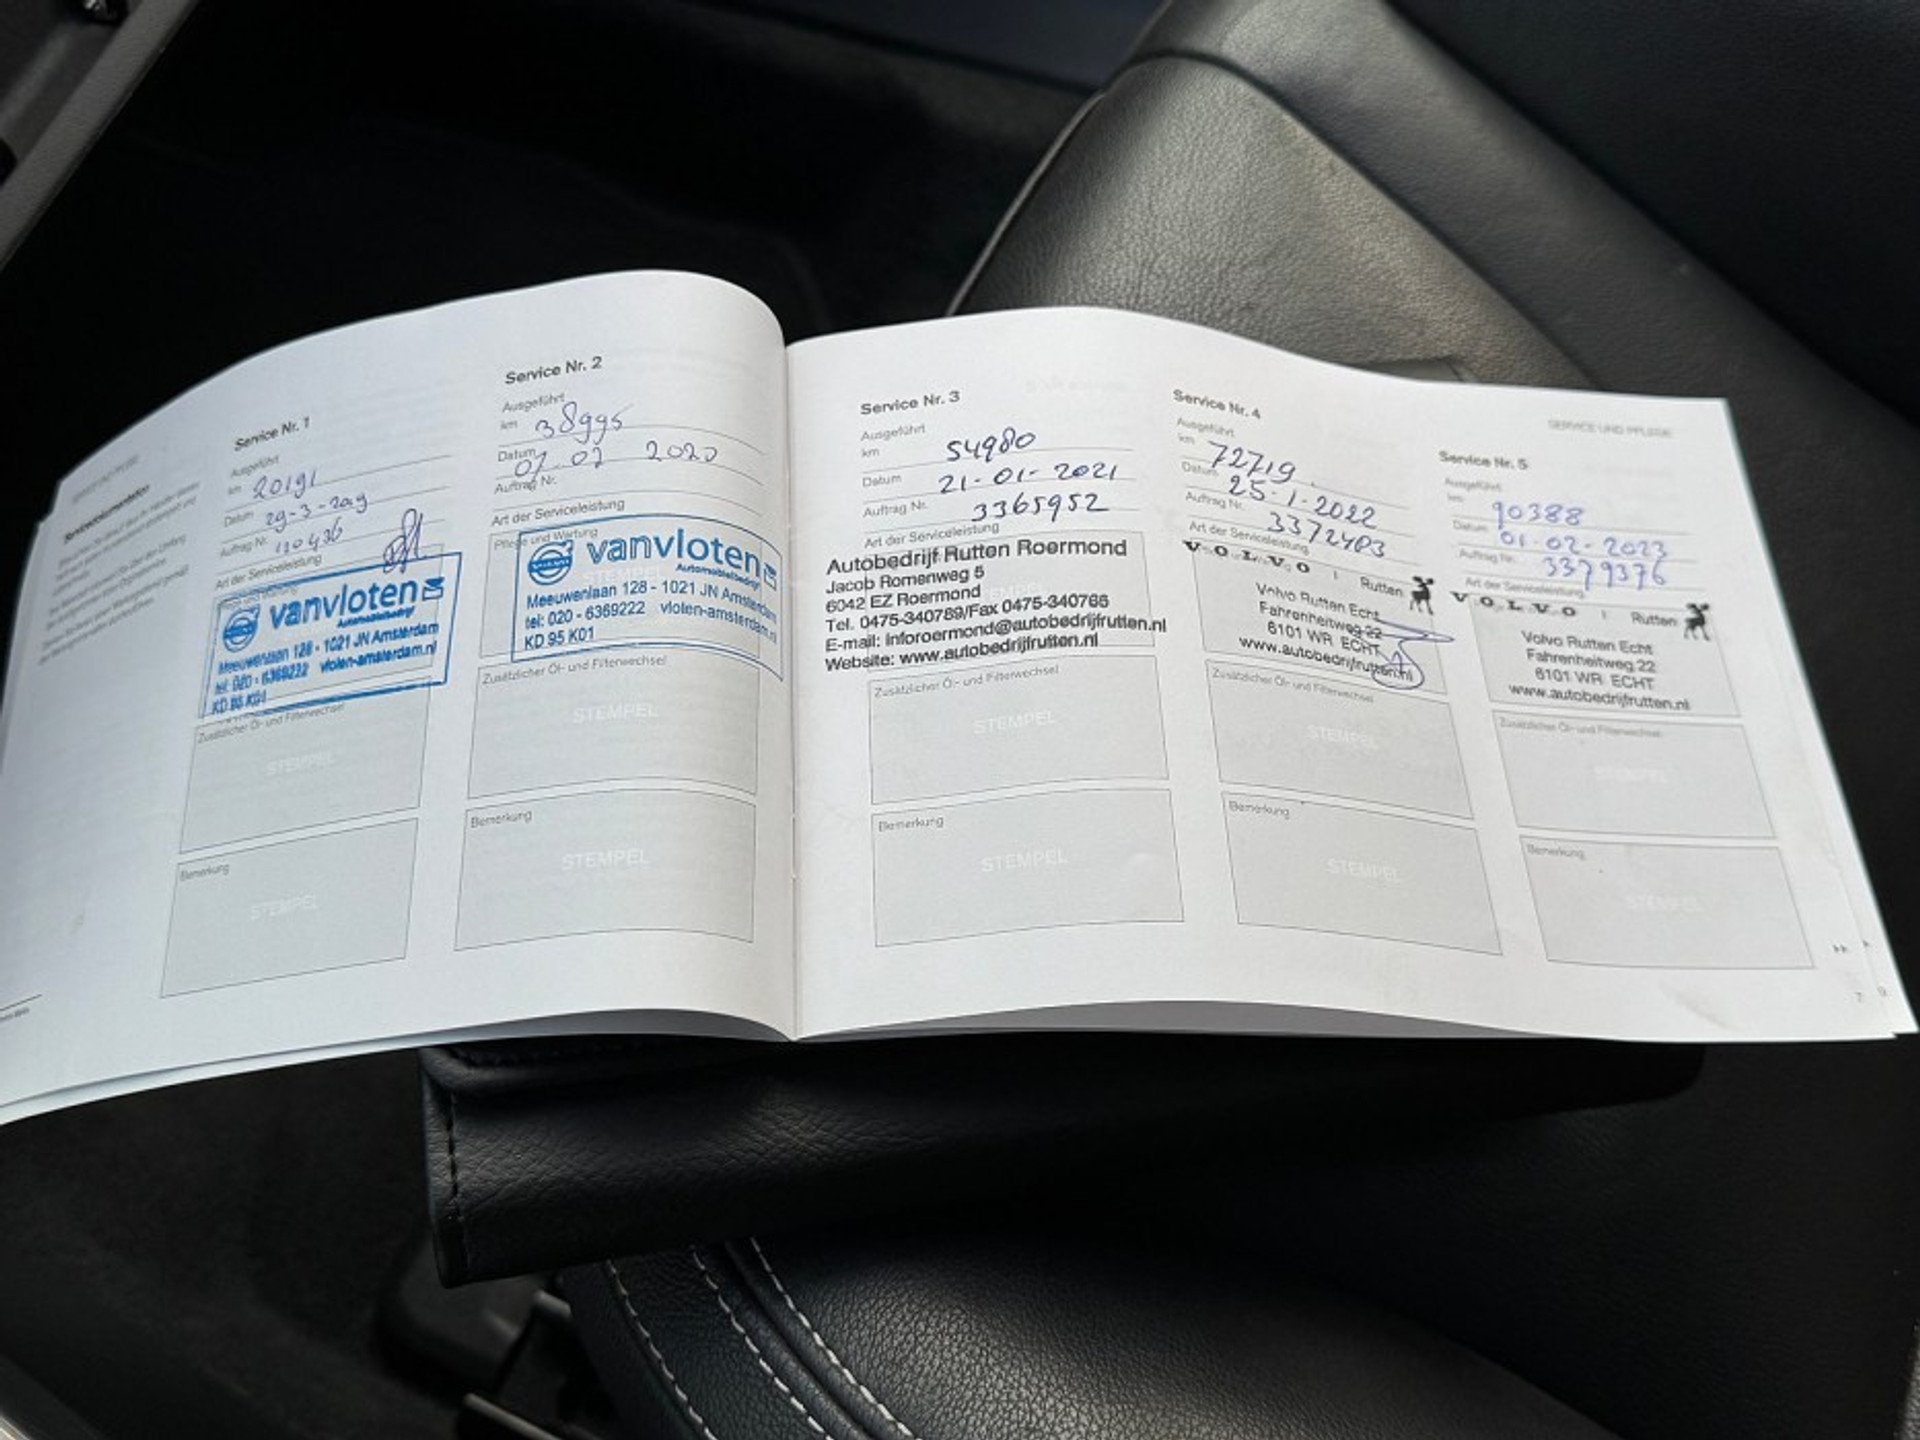 Servicedokumentation
Service Nr. 1
Ausgeführt
km 20191
Datum 29-3-2019
Auftrag Nr. 110436
Art der Serviceleistung
vanvloten
Automobielbedrijf
Meeuwenlaan 128 - 1021 JN Amsterdam
tel: 020 - 6369222 vloten-amsterdam.nl
KD 95 K01
Zusätzlicher Öl- und Filterwechsel
STEMPEL
Bemerkung
STEMPEL
Service Nr. 2
Ausgeführt
km 38995
Datum 07-02 2020
Auftrag Nr.
Art der Serviceleistung
Pflege und Wartung
vanvloten
Automobielbedrijf
STEMPEL
Meeuwenlaan 128 - 1021 JN Amsterdam
tel: 020 - 6369222 vloten-amsterdam.nl
KD 95 K01
Zusätzlicher Öl- und Filterwechsel
STEMPEL
Bemerkung
STEMPEL
Service Nr. 3
Ausgeführt
km 54980
Datum 21-01-2021
Auftrag Nr. 3365952
Art der Serviceleistung
Autobedrijf Rutten Roermond
Jacob Romenweg 5
6042 EZ Roermond
Tel. 0475-340789/Fax 0475-340766
E-mail: inforoermond@autobedrijfrutten.nl
Website: www.autobedrijfrutten.nl
Zusätzlicher Öl- und Filterwechsel
STEMPEL
Bemerkung
STEMPEL
Service Nr. 4
Ausgeführt
km 72719
Datum 25-1-2022
Auftrag Nr. 3372403
Art der Serviceleistung
VOLVO | Rutten
Volvo Rutten Echt
Fahrenheitweg 22
6101 WR ECHT
www.autobedrijfrutten.nl
Zusätzlicher Öl- und Filterwechsel
STEMPEL
Bemerkung
STEMPEL
SERVICE UND PFLEGE
Service Nr. 5
Ausgeführt
km 90388
Datum 01-02-2023
Auftrag Nr. 3379376
Art der Serviceleistung
VOLVO | Rutten
Volvo Rutten Echt
Fahrenheitweg 22
6101 WR ECHT
www.autobedrijfrutten.nl
Zusätzlicher Öl- und Filterwechsel
STEMPEL
Bemerkung
STEMPEL
7 9